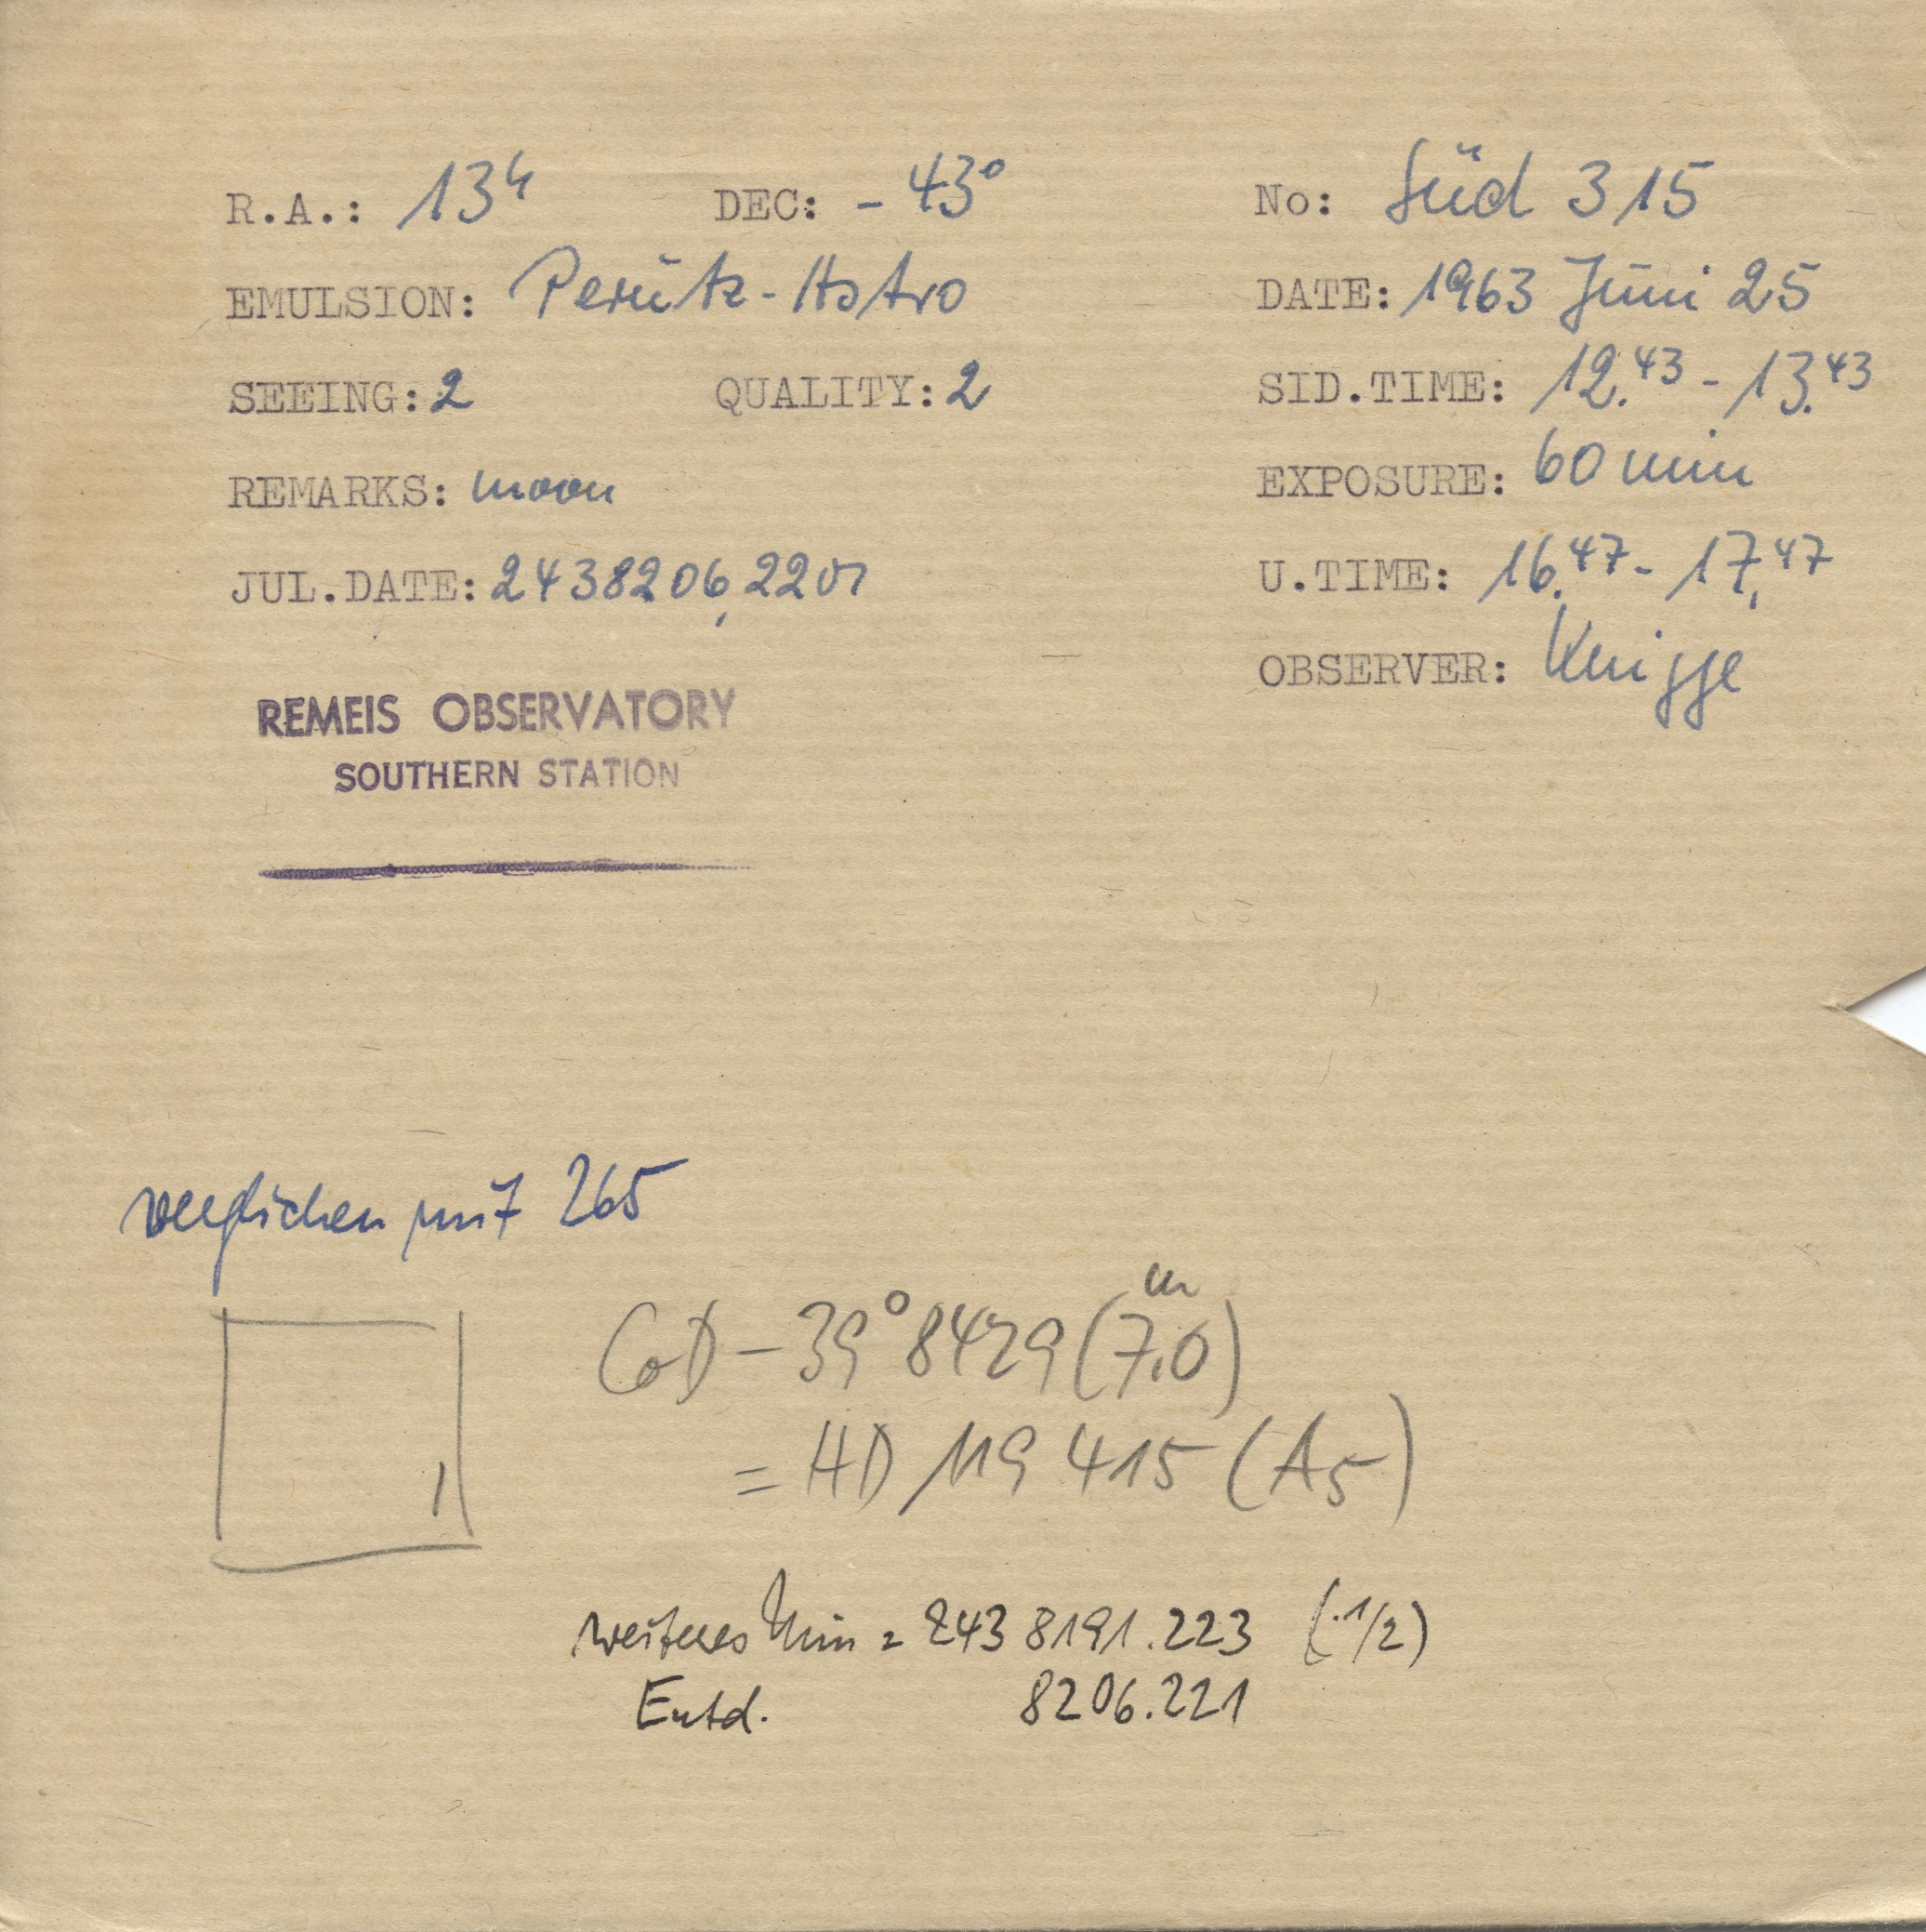 R.A.: 13h DEC: -43° No: Süd 315
EMULSION: Perutz-Astro DATE: 1963 Juni 25
SEEING: 2 QUALITY: 2 SID.TIME: 12.43 - 13.43
REMARKS: moon EXPOSURE: 60 min
JUL.DATE: 2438206,2201 U.TIME: 16.47 - 17.47
OBSERVER: Knigge
REMEIS OBSERVATORY
SOUTHERN STATION
verglichen mit 265
CoD -39° 8429 (7.0m)
= HD 119 415 (A5)
weiteres Min = 243 8191.223 (.1/2)
Entd. 8206.221